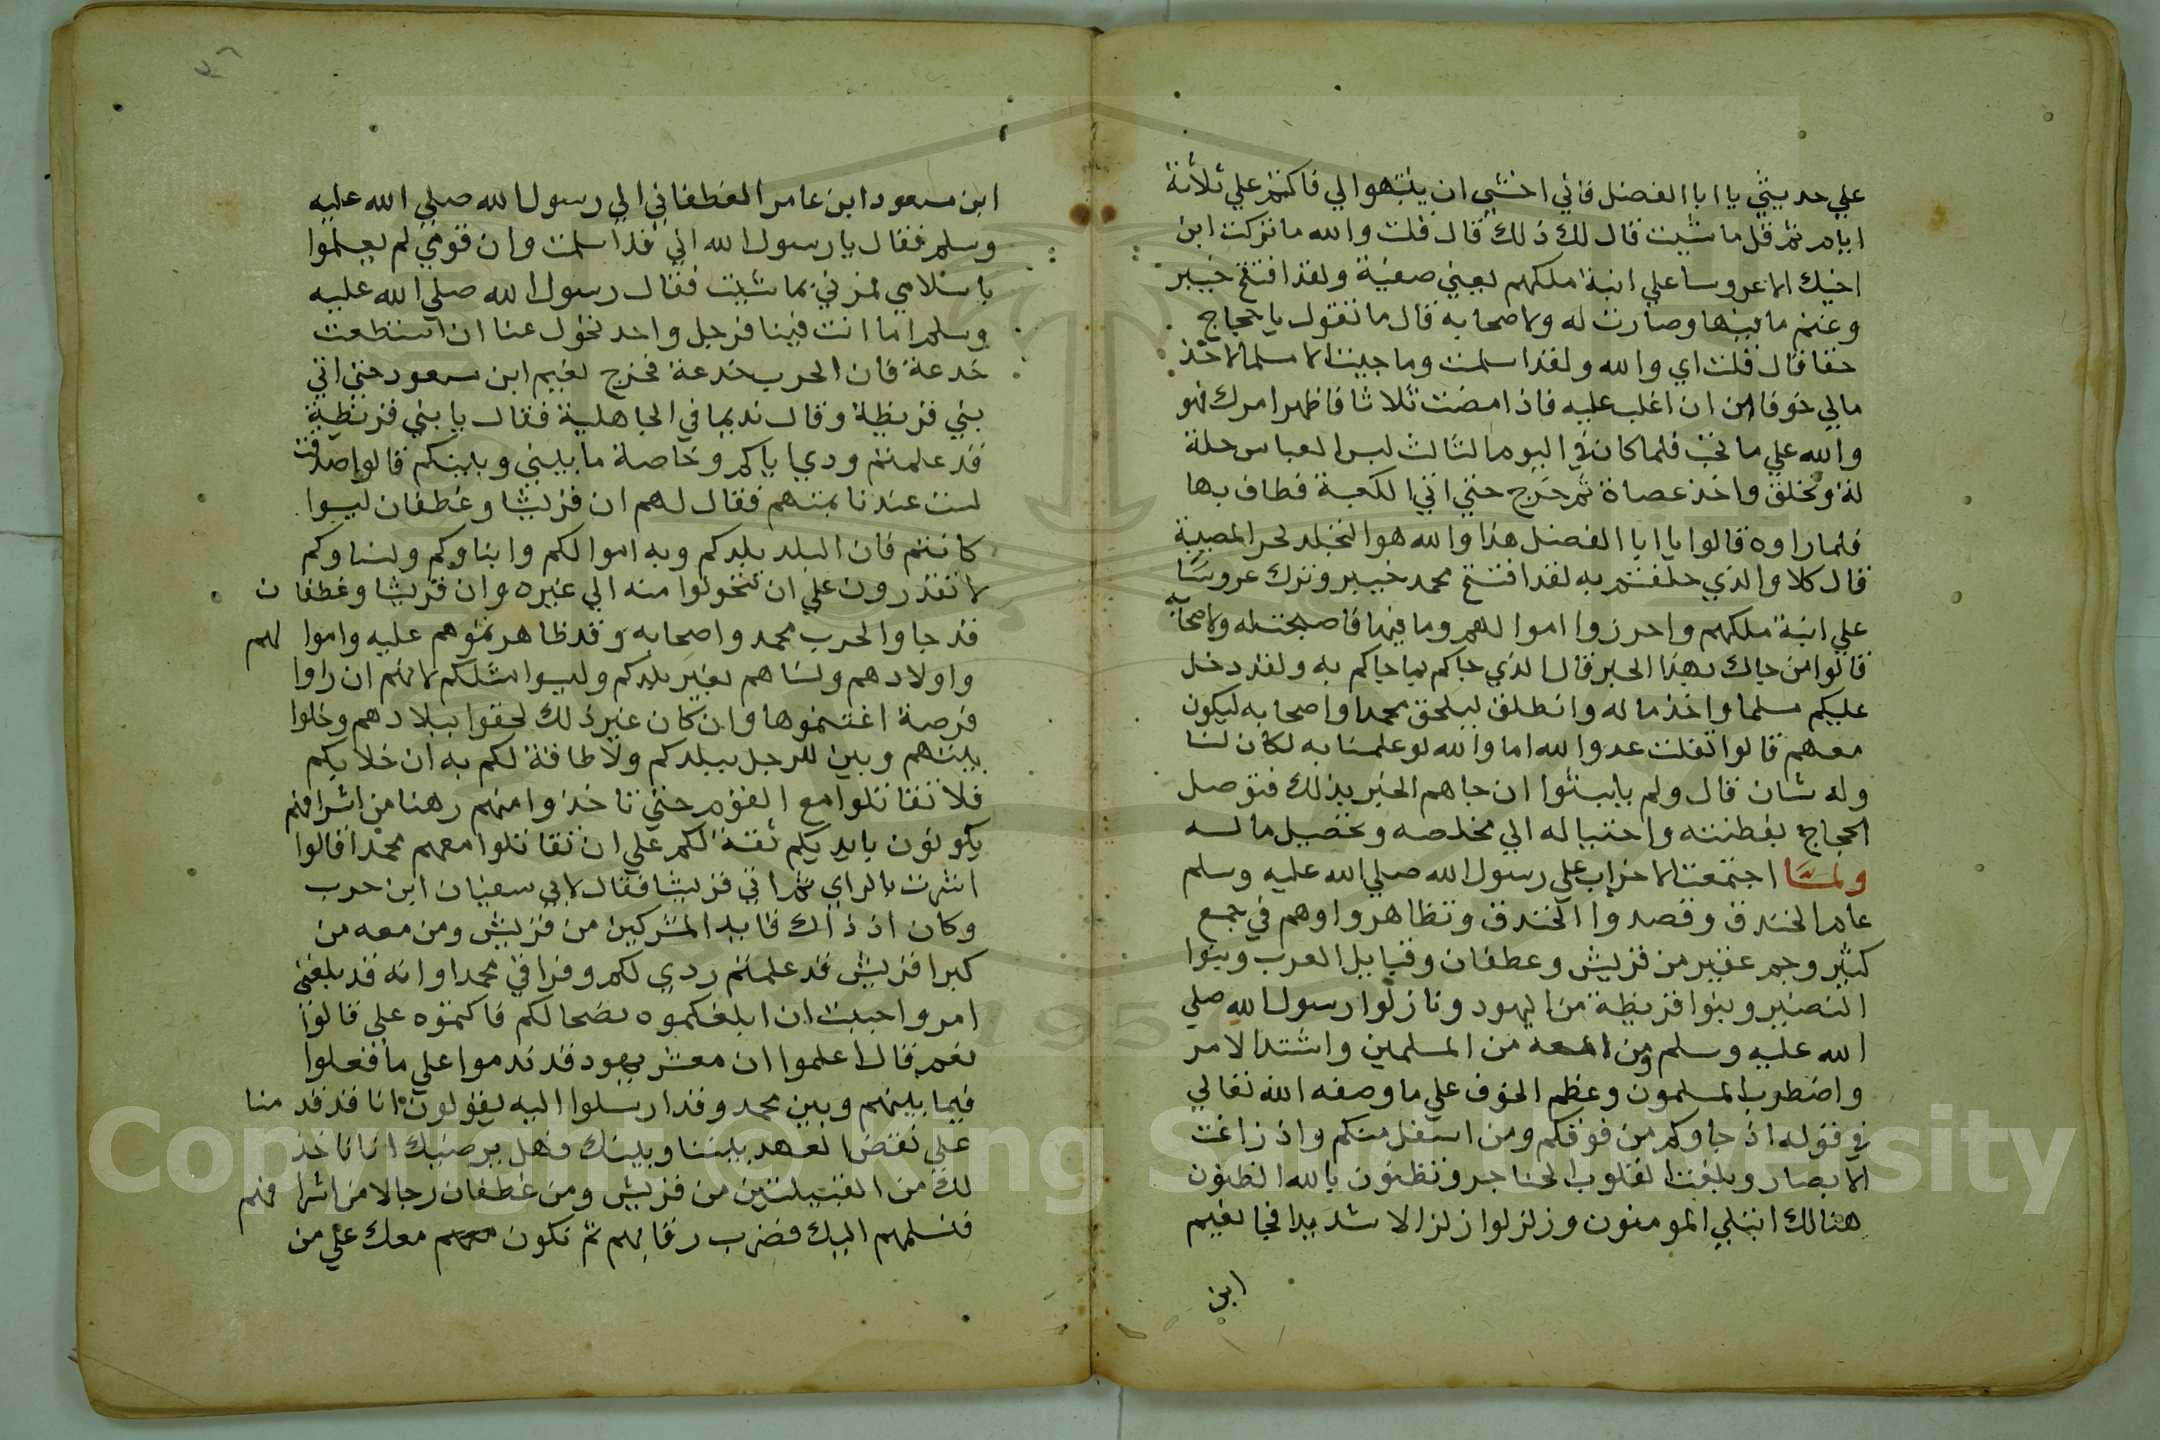 علي حديثي يا ابا الفضل فاني اخشي ان ينتهوا لي فاكتم علي ثلاثة
ايام ثم قل ما شيت قال لك ذلك قال قلت والله ما تركت ابن
اخيك الا عروسا علي ابنة ملكهم يعني صفية ولقد افتتح خيبر
وغنم ما فيها وصارت له ولاصحابه قال ما تقول يا حجاج
حقا قال قلت اي والله ولقد اسلمت وما جيت الا مسلما لاخذ
مالي خوفا من ان اغلب عليه فاذا مضت ثلاثا فاظهر امرك فهو
والله علي ما تحب فلما كان في اليوم الثالث لبس العباس حلة
له وتخلق واخذ عصاة ثم خرج حتي اتي الكعبة فطاف بها
فلما راوه قالوا يا ابا الفضل هذا والله هو التجلد لحر المصيبة
قال كلا والذي حلفتم به لقد افتتح محمد خيبر وترك عروسا
علي ابنة ملكهم واحرزوا اموالهم وما فيها فاصبحت له ولاصحابه
قالوا من جاك بهذا الخبر قال الذي جاكم بما جاكم به ولقد دخل
عليكم مسلما واخذ ماله وانطلق ليلحق محمدا واصحابه ليكون
معهم قالوا تفلت عدو الله اما والله لو علمنا به لكان لنا
وله شان قال ولم يلبثوا ان جاهم الخبر بذلك فتوصل
الحجاج بفطنته واحتياله الي مخلصه وتحصيل ماله
ولما اجتمعت الاحزاب علي رسول الله صلي الله عليه وسلم
عام الخندق وقصدوا الخندق وتظاهروا وهم في جمع
كثير وجم غفير من قريش وغطفان وقبايل العرب وبنوا
النضير وبنوا قريظة من اليهود ونازلوا رسول الله صلي
الله عليه وسلم ومن معه من المسلمين واشتد الامر
واضطرب المسلمون وعظم الخوف علي ما وصفه الله تعالي
في قوله اذ جاوكم من فوقكم ومن اسفل منكم واذ زاغت
الابصار وبلغت القلوب الحناجر وتظنون بالله الظنون
هنالك ابتلي المومنون وزلزلوا زلزالا شديدا فجا نعيم
ابن
ابن مسعود ابن عامر الغطفاني الي رسول الله صلي الله عليه
وسلم فقال يا رسول الله اني قد اسلمت وان قومي لم يعلموا
باسلامي فمرني بما شيت فقال رسول الله صلي الله عليه
وسلم اما انت فينا فرجل واحد نحول عنا ان استطعت
خدعة فان الحرب خدعة فخرج نعيم ابن مسعود حتي اتي
بني قريظة وقال نديما في الجاهلية فقال يا بني قريظة
قد علمتم ودي اياكم وخاصة ما بيني وبينكم قالوا صدقت
لست عندنا بمتهم فقال لهم ان قريشا وغطفان ليسوا
كانتم فان البلد بلدكم وبه اموالكم وابناوكم ونساوكم
لا تقدرون علي ان تتحولوا منه الي غيره وان قريشا وغطفان
قد جاوا لحرب محمد واصحابه وقد ظاهرتموهم عليه واموالهم
واولادهم ونساهم بغير بلدكم وليسوا مثلكم لانهم ان راوا
فرصة اغتنموها وان كان غير ذلك لحقوا ببلادهم وخلوا
بينهم وبين الرجل ببلدكم ولا طاقة لكم به ان خلا بكم
فلا تقاتلوا مع القوم حتي تاخذوا منهم رهنا من اشرافهم
يكونون بايديكم ثقة لكم علي ان تقاتلوا معهم محمدا قالوا
اشرت بالراي ثم اتي قريشا فقال لابي سفيان ابن حرب
وكان اذ ذاك قايد المشركين من قريش ومن معه من
كبرا قريش قد علمتم ردي لكم وفراقي محمدا وانه قد بلغني
امر واحببت ان ابلغكموه نصحا لكم فاكتموه علي قالوا
نعم قال اعلموا ان معشر يهود قد ندموا علي ما فعلوا
فيما بينهم وبين محمد وقد ارسلوا اليه يقولون انا قد قدمنا
علي نقض العهد بيننا وبينك فهل يرضيك انا ناخذ
لك من القبيلتين من قريش ومن غطفان رجالا من اشرافهم
فنسلمهم اليك فتضرب رقابهم ثم نكون معك علي من